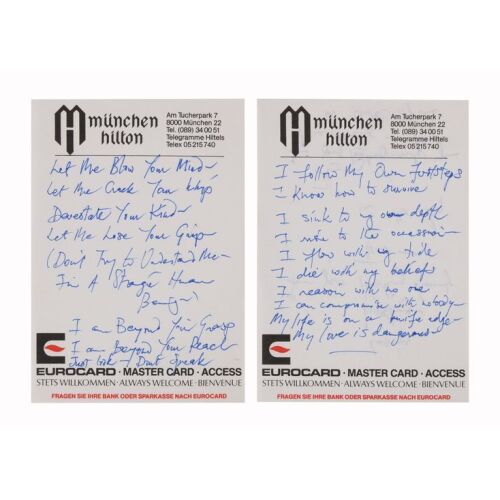 münchen
hilton
Am Tucherpark 7
8000 München 22
Tel. (089) 34 00 51
Telegramme Hiltels
Telex 05 215 740
Let Me Blow Your Mind -
Let Me Crack Your Whip
Devastate Your Kind -
Let Me Lose Your Grip -
(Don't Try to Understand Me -
I'm A Strange Human
Being)
I am Beyond Your Grasp
I am Beyond Your Reach
Just Look - Don't Speak
EUROCARD · MASTER CARD · ACCESS
STETS WILLKOMMEN · ALWAYS WELCOME · BIENVENUE
FRAGEN SIE IHRE BANK ODER SPARKASSE NACH EUROCARD
münchen
hilton
Am Tucherpark 7
8000 München 22
Tel. (089) 34 00 51
Telegramme Hiltels
Telex 05 215 740
I follow My Own Footsteps
I Know how to survive
I sink to my own depth
I rise to the occassion -
I flow with my tide
I die with my beliefs
I reason with no one
I can compromise with nobody -
My life is on a knife edge -
My love is dangerous -
EUROCARD · MASTER CARD · ACCESS
STETS WILLKOMMEN · ALWAYS WELCOME · BIENVENUE
FRAGEN SIE IHRE BANK ODER SPARKASSE NACH EUROCARD